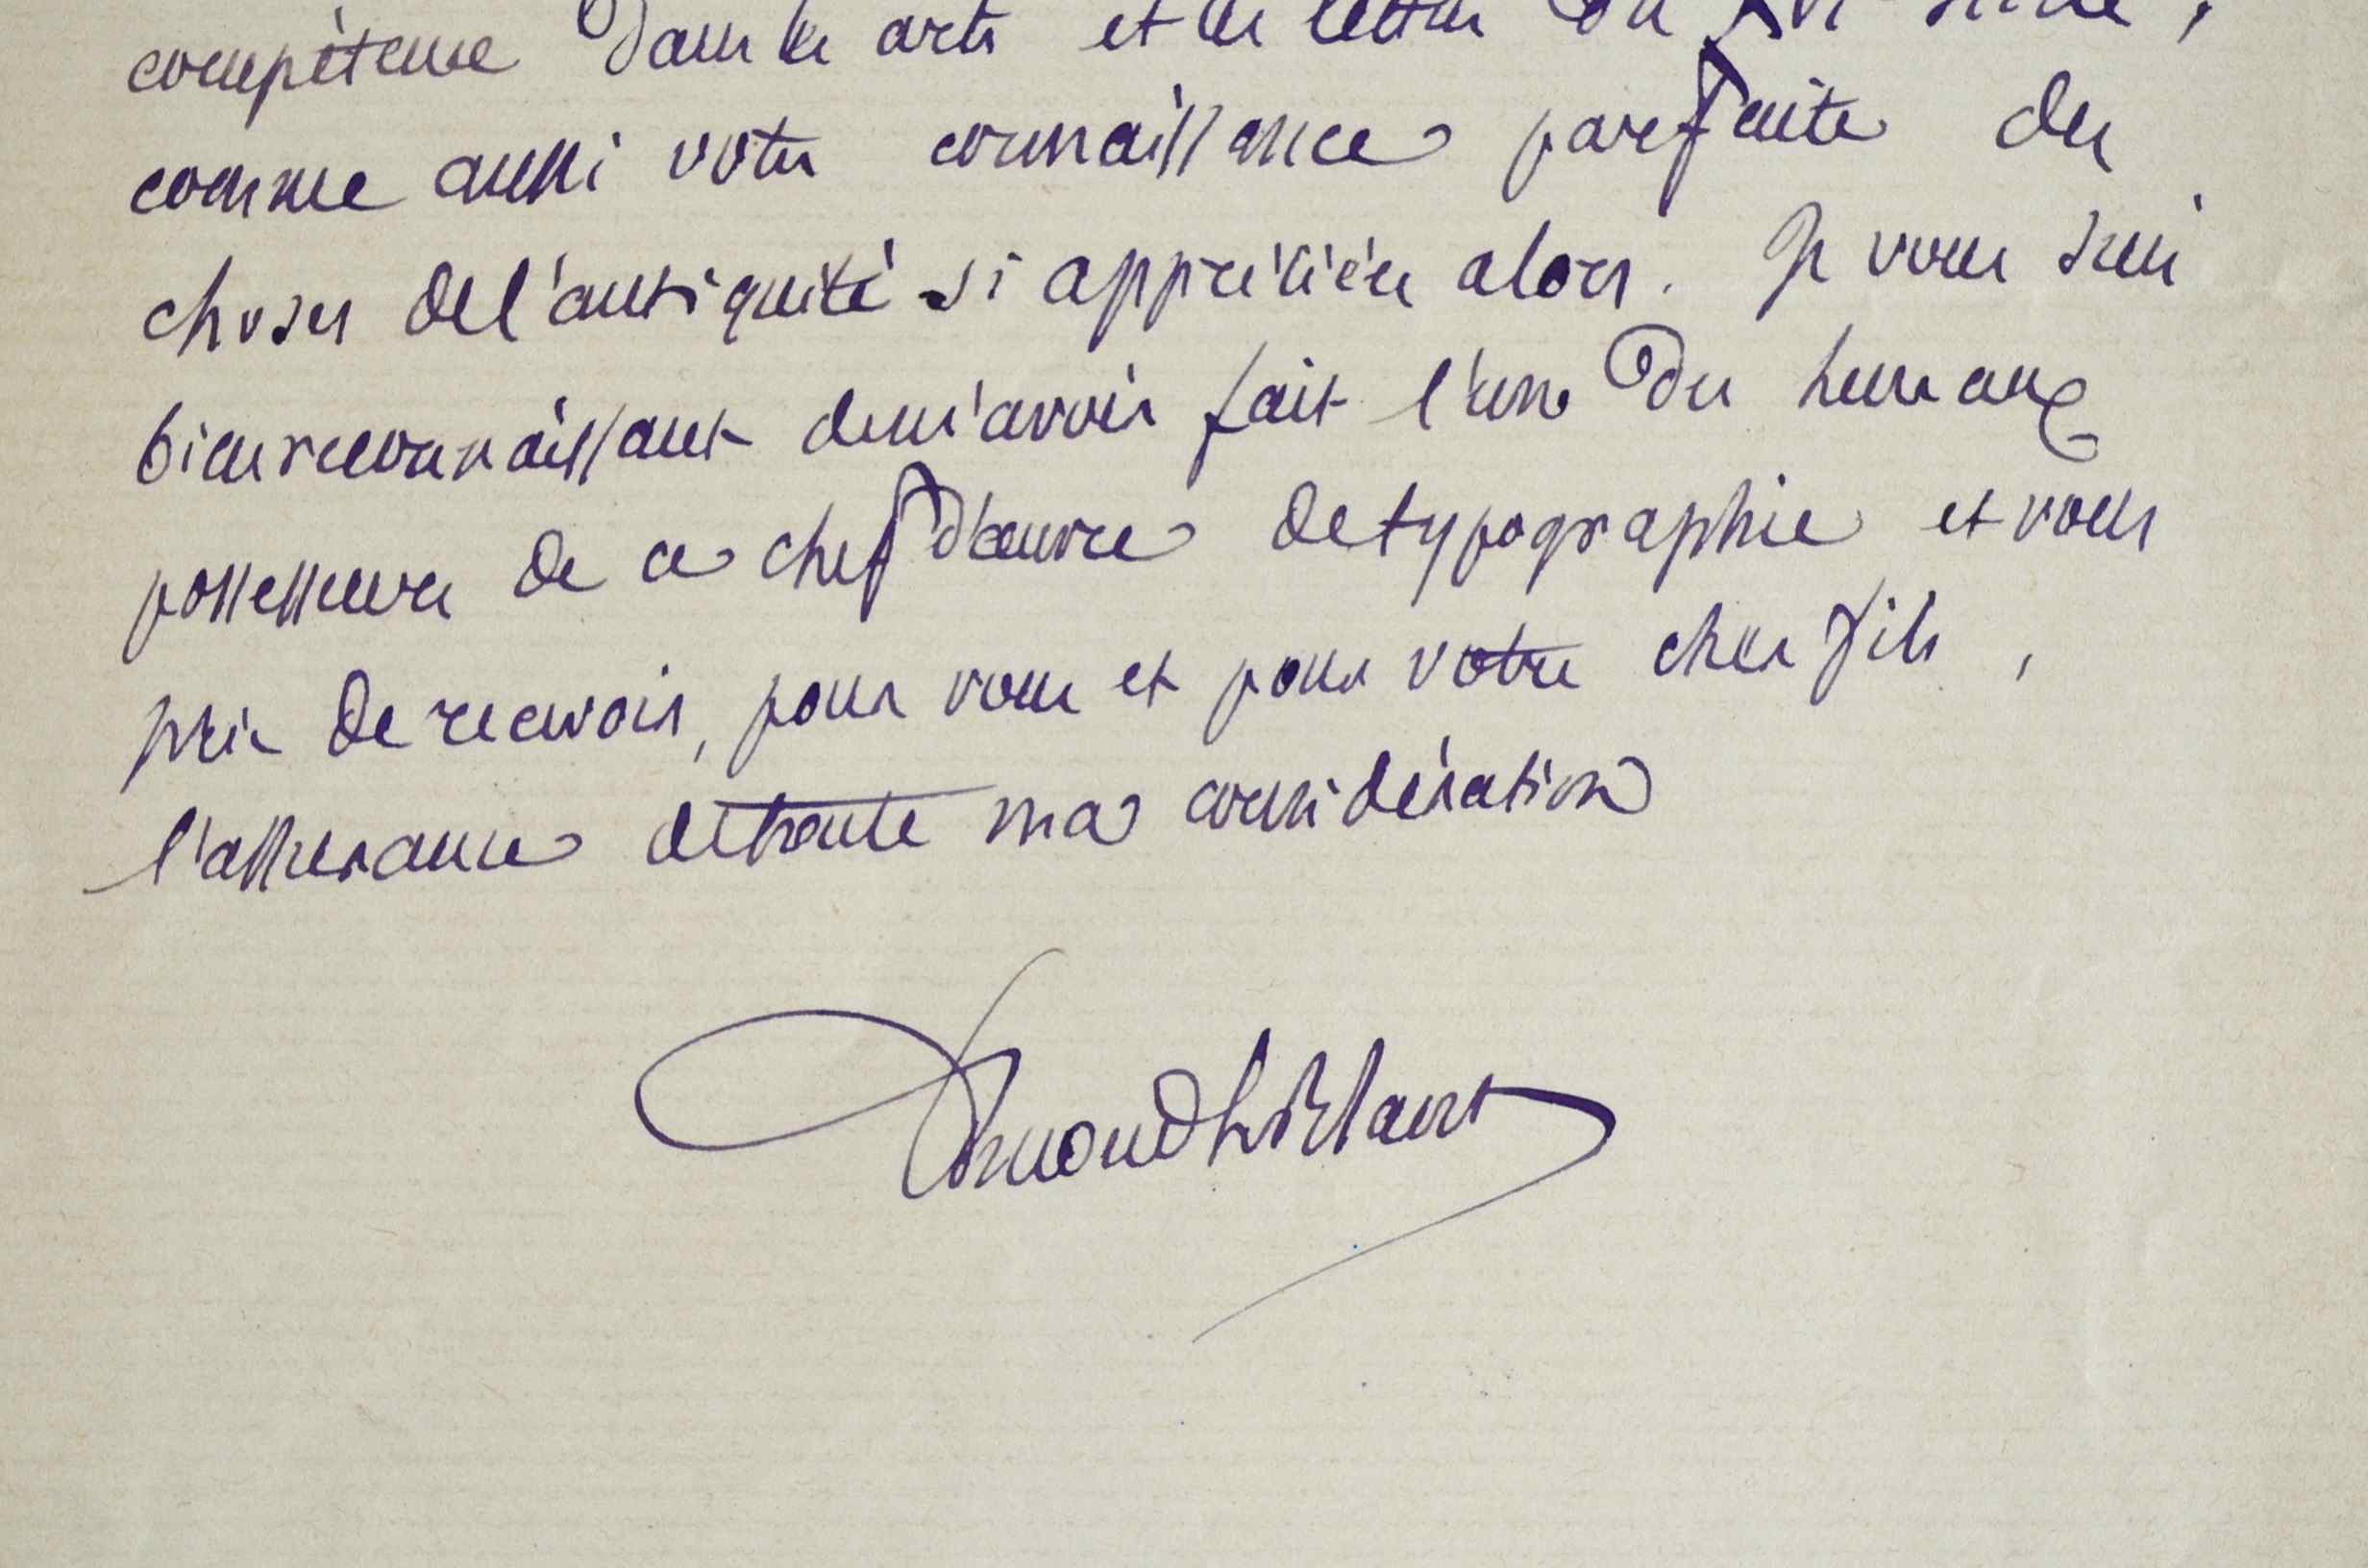 compétence dans les arts et les lettres du XVIe siècle,
comme aussi votre connaissance parfaite des
choses de l'antiquité si appréciées alors. Je vous suis
bien reconnaissant de m'avoir fait l'un des heureux
possesseurs de ce chef d'œuvre de typographie et vous
prie de recevoir, pour vous et pour votre cher fils,
l'assurance de toute ma considération
Edmond Le Blant